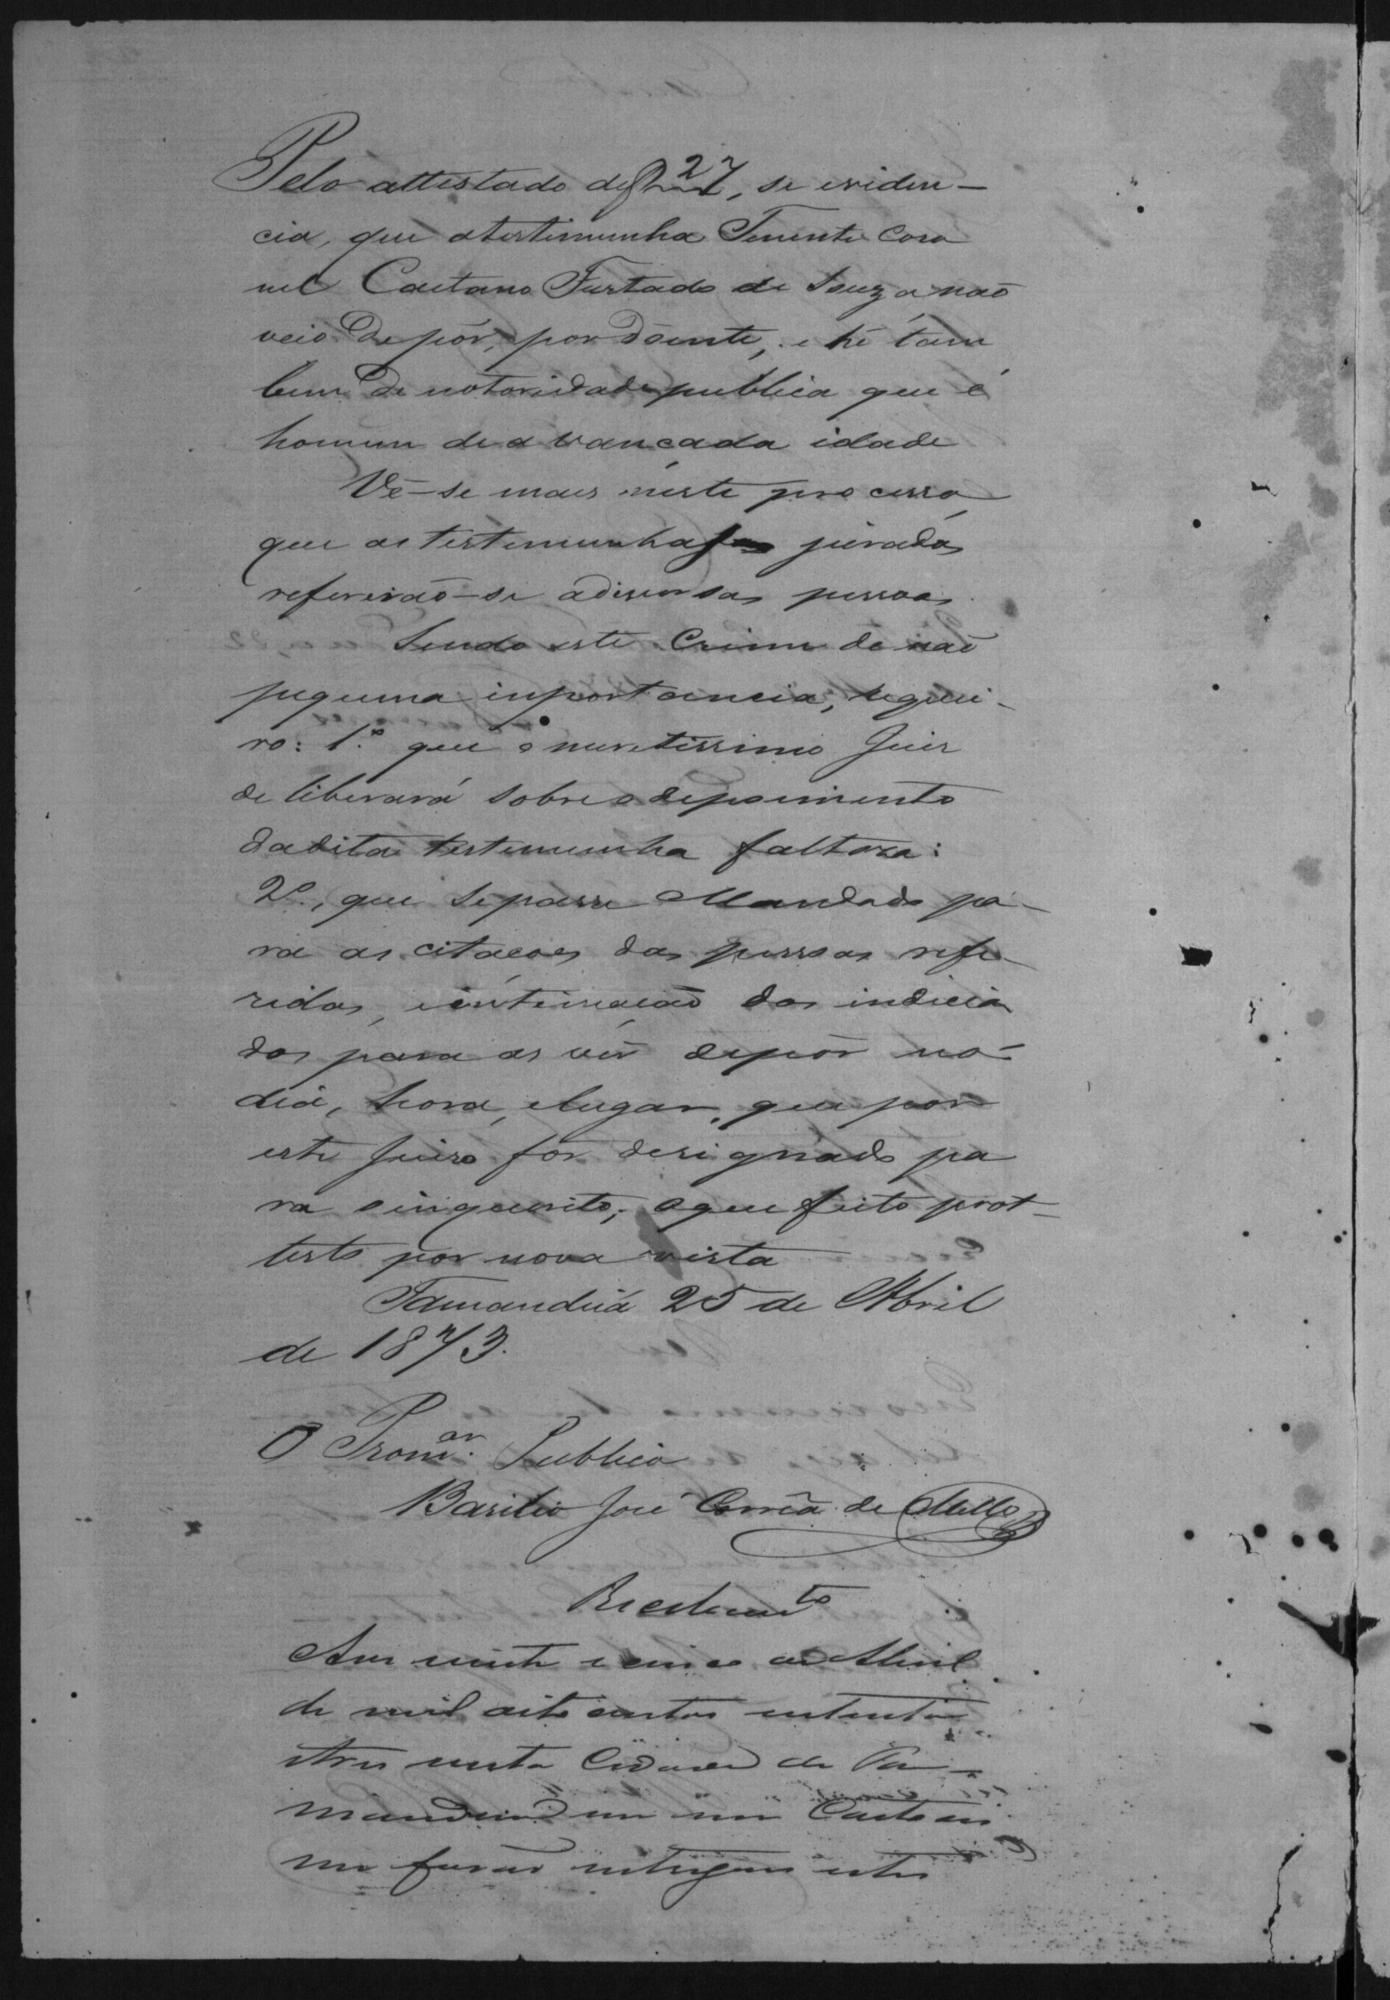 Pelo attestado de f 27, se eviden-
cia, que a testimunha Tenente Coro
nel Caetano Furtado de Souza não
veio depôr, por doente, e hé tam
bem de notoridade publica que é
homem de avançada idade
Vê-se mais neste processo,
que as testemunhas juradas
referirão-se a diversas pessoas.
Sendo este Crime de não
pequena inportancia, requei-
ro: 1.º que o meretissimo Juis
deliberará sobre o depoimento
da dita testemunha faltoza:
2º, que se passe Mandado pa-
ra as citacoes das pessoas refe-
ridas, e intimação dos indicia
dos para as vêr depôr no
dia, hora, e lugar, que por
este Juiso fôr designado pa
ra o inquerito; o que feito prot-
testo por nova vista
Tamanduá 25 de Abril
de 1873.
O Prom.or Publico
Basilio José Corrêa de Mello
Recebim.to
Aos vinte e cinco de Abril
de mil oito centos e setenta
e tres nesta Cidade de Ta-
manduá em meo Cartorio
me forão entregues estes